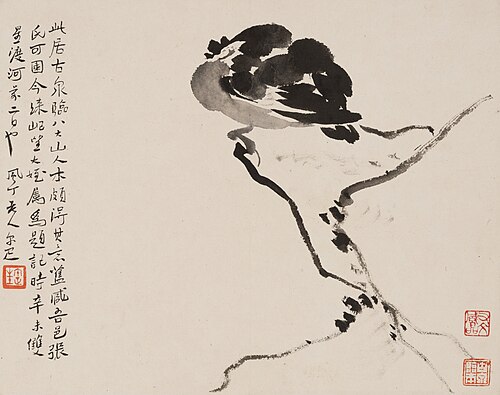 此居古泉臨八大山人本頗得其意舊藏吾邑張
氏可園今歸屺望大姪屬為題記時辛未雙
星渡河前二日也 風丁老人